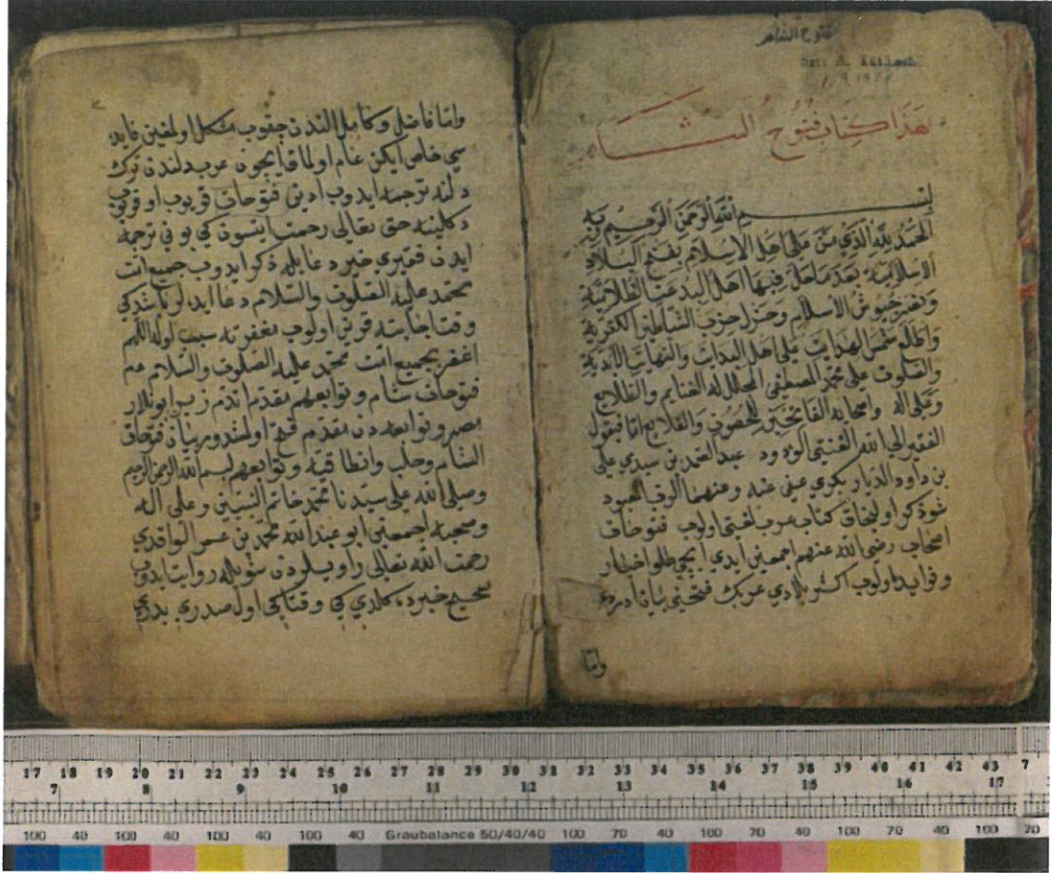 فتوح الشام
هذا كتاب فتوح الشام
بسم الله الرحمن الرحيم وبه
الحمد لله الذي من على اهل الاسلام بفتح البلاد
الاسلامية بعد ما هل فيها اهل البدعية الظلامية
ونصر جيوش الاسلام وخذل حزب الشياطين الكفرية
واطلع شمس الهدايت على اهل البدايت والنهايت الابدية
والصلوة على محمد المصطفى المحلل له الغنايم والطلايع
وعلى اله واصحابه الفاتحين للحصون والقلايع اما فيقول
الفقير الى الله الغني الودود عبد الصمد بن سيدي علي
بن داود الديار بكري عفى عنه وعنهما الرب المعبود
شو ذكر اولنجاق كتاب عرب لغتي اولوب فتوحات
اصحاب رضى الله عنهم اجمعين ايدي ايچي طلو اخبار
وفوايد اولوب اكثر بلادي عربك فتحني بيان ايدردي
واما
واما فاضل وكامل الندن چقوب مشكل اولمغين فايده
سي خاص ايكن عام اولماق ايچون عرب دلندن ترك
دلنه ترجمه ايدوب اديني فتوحات قويوب اوقويوب
دكلينه حق تعالى رحمت ايتسون كي بوني ترجمه
ايدن فقيري خير دعايله ذكر ايدوب جميع امت
محمد عليه الصلوة والسلام دعا ايدلر تا بندكي
وقت اجابته قرين اولوب مغفرته سبب اوله اللهم
اغفر لجميع امت محمد عليه الصلوة والسلام
فتوحات شام وتوابعهم مقدم اندم زيرا بونلار
مصر وتوابعه دن مقدم فتح اولمشدور بيان فتوحات
الشام وحلب وانطاقيه وتوابعهم بسم الله الرحمن الرحيم
وصلى الله على سيدنا محمد خاتم النبيين وعلى اله
وصحبه اجمعين ابو عبد الله محمد بن عمر الواقدي
رحمت الله تعالى راويلردن سويله روايت ايدوب
صحيح خبرده كلدي كي وقتاكي اول صدري بدري
37 18 19 20 21 22 23 24 25 26 27 28 29 30 31 32 33 34 35 36 37 38 39 40 41 42 43 7
7 8 9 10 11 12 13 14 15 16 17
100 40 100 40 100 40 100 40 Graubalance 50/40/40 100 70 40 100 70 40 100 70 40 100 70